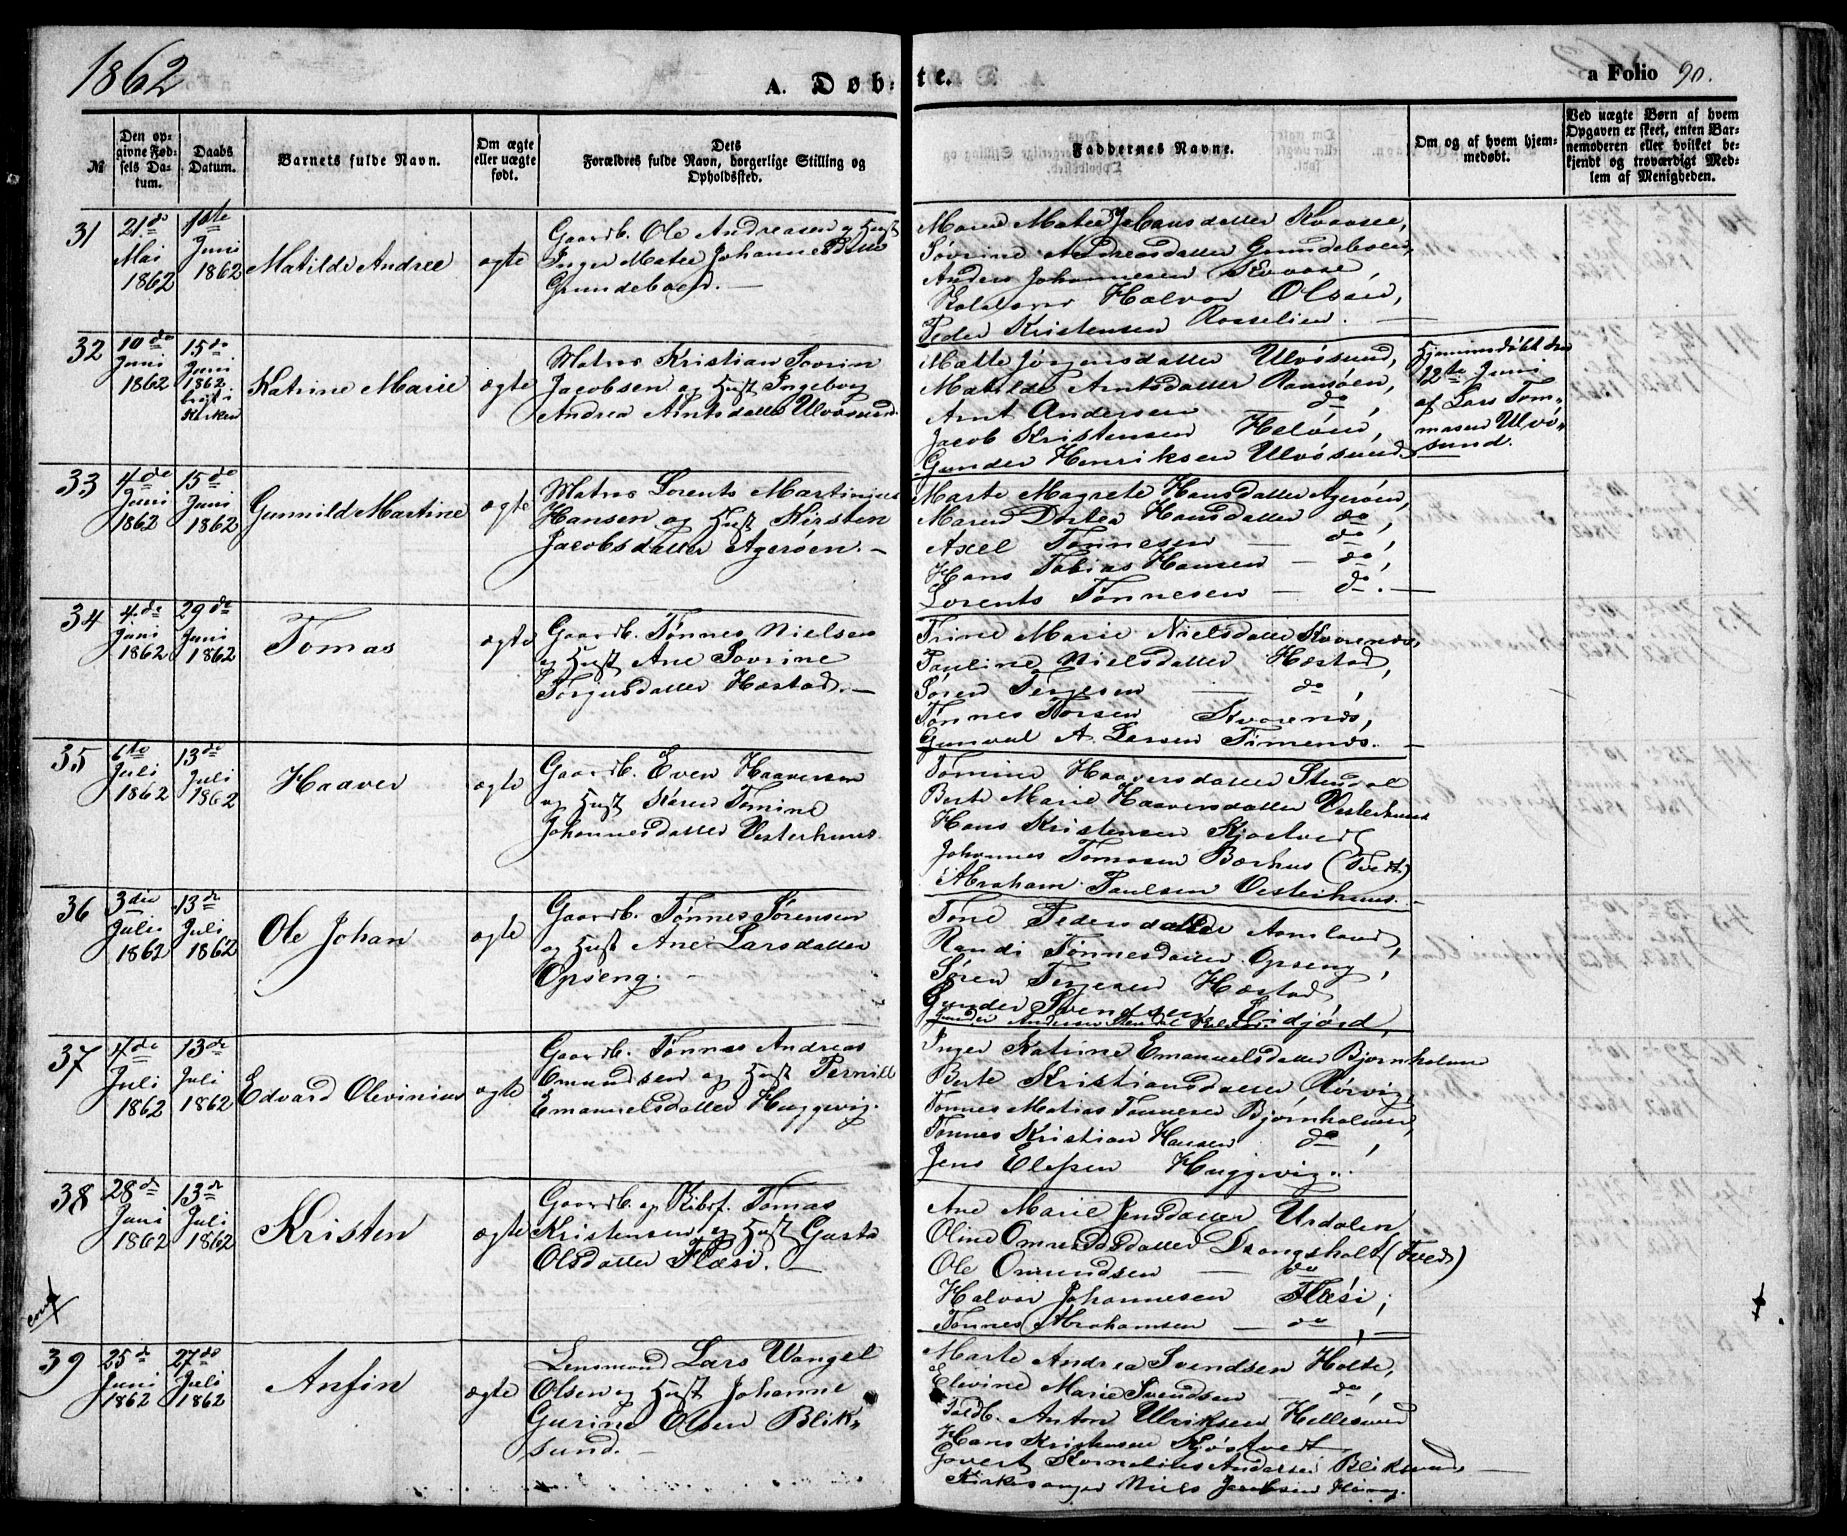 1862
A. Døbte.
a Folio 90.
№
Den opgivne Fødsels Datum.
Daabs Datum.
Barnets fulde Navn.
Om ægte eller uægte født.
Dets Forældres fulde Navn, borgerlige Stilling og Opholdssted.
Faddernes Navne.
Om og af hvem hjemmedøbt.
Ved uægte Børn af hvem Opgaven er skeet, enten Barnemoderen eller hvilket bekjendt og troværdigt Medlem af Menigheden.
31
21de Mai 1862
1ste Juni 1862
Matilde Andree
ægte
Gaardb. Ole Andreasen og Hust
Inger Matee Johannesdatter
Grundeboen.
Maren Matea Johansdatter Kvaase,
Sørine Andreasdatter Grundeboen,
Anders Johannesen Kvaase,
Halvor Olsen,
Peder Kristensen Rosselien.
32
10de Juni 1862
15de Juni 1862 bragt i Kirken
Katrine Marie
ægte
Matros Kristian Severin
Jacobsen og Hust Ingeborg
Andrea Arntsdatter Ulvøsund
Matte Jørgensdatter Ulvøsund,
Matilde Arntsdatter Ramsøen,
Arnt Andersen do,
Jacob Kristensen Heløen,
Gunder Henriksen Ulvøsund.
Hjemmedøbt den
12te Juni
af Lars Tom-
masen Ulvø-
sund.
33
4de Juni 1862
15de Juni 1862
Gunnild Martine
ægte
Matros Lorents Martinius
Hansen og Hust Kirsten
Jacobsdatter Agerøen.
Marte Magrete Hansdatter Agerøen,
Maren Dortea Hansdatter do,
Axel Tønnesen do,
Hans Tobias Hansen do,
Lorents Tønnesen do.
34
4de Juni 1862
29de Juni 1862
Tomas
ægte
Gaardb. Tønnes Nielsen
og Hust Ane Sovrine
Tørgesdatter Hæstad.
Trine Marie Nielsdatter Kvarenæs,
Pauline Nielsdatter Hæstad,
Søren Terjesen do,
Tønnes Torsen Kvarenæs,
Gunval A. Larsen Timenæs.
35
6te Juli 1862
13de Juli 1862
Haaver
ægte
Gaardb. Even Haaversen
og Hust Karen Tomine
Johannesdatter Vesterhuus.
Tomine Haaversdatter Stendal
Berte Marie Haaversdatter Vesterhuus
Hans Kristensen Kjøstvedt
Johannes Tomasen Bærhus (Tvedt)
Abraham Paulsen Vesterhuus.
36
3die Juli 1862
13de Juli 1862
Ole Johan
ægte
Gaardb. Tønnes Sørensen
og Hust Ane Larsdatter
Opseng.
Tone Pedersdatter Aamland,
Randi Tønnesdatter Opseng,
Søren Terjesen Hæstad,
Gunder Svendsen Eidjord,
Gunder Andersen Stendal
37
4de Juli 1862
13de Juli 1862
Edvard Olevinius
ægte
Gaardb. Tønnes Andreas
Emundsen og Hust Pernill
Emanuelsdatter Huggevig.
Inger Katrine Emanuelsdatter Bjornholmen
Berte Kristiansdatter Rørvig,
Tønnes Matias Tønnesen Bjørnholmen,
Tønnes Kristian Hansen do,
Jens Elefsen Huggevig.
38
28de Juni 1862
13de Juli 1862
Kristen
ægte
Gaardb. og Kibsf. Tomas
Kristensen og Hust Gusta
Olsdatter Flæsi.
Ane Marie Jensdatter Urdalen
Oline Omundsdatter Drangsholt (Tvedt)
Ole Omundsen do
Halvor Johannesen Flæsi,
Tønnes Abrahamsen do,
39
25de Juni 1862
27de Juli 1862
Anfin
ægte
Lensmand Lars Wangel
Olsen og Hust Johanne
Gurine Olsen Blik-
sund.
Marte Andrea Svendsen Holte,
Elevine Marie Svendsen do,
Toldb. Anton Ulriksen Hellesund
Hans Kristensen Kjøstvedt
Govert Kornelius Andersen Bliksund
Kirkesanger Niels Jacobsen